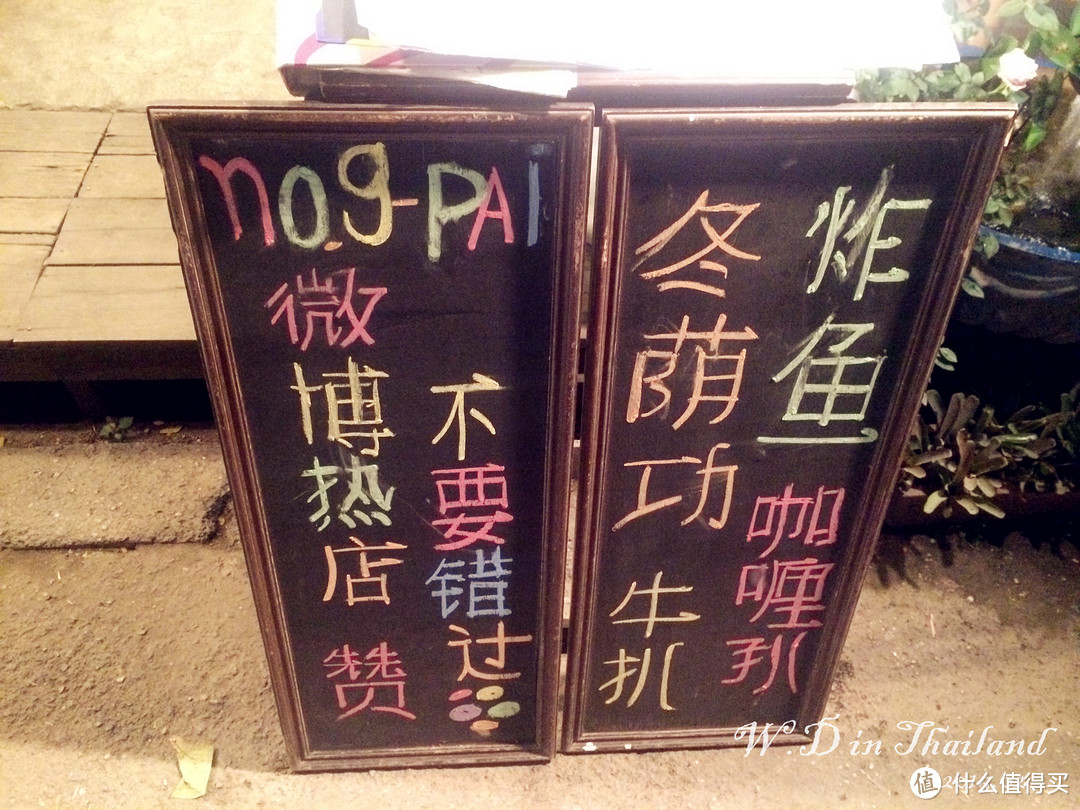 no.9-PAI
微博热店 赞
不要错过
冬荫功
牛扒
炸鱼
咖喱扒
W.D in Thailand
值 什么值得买